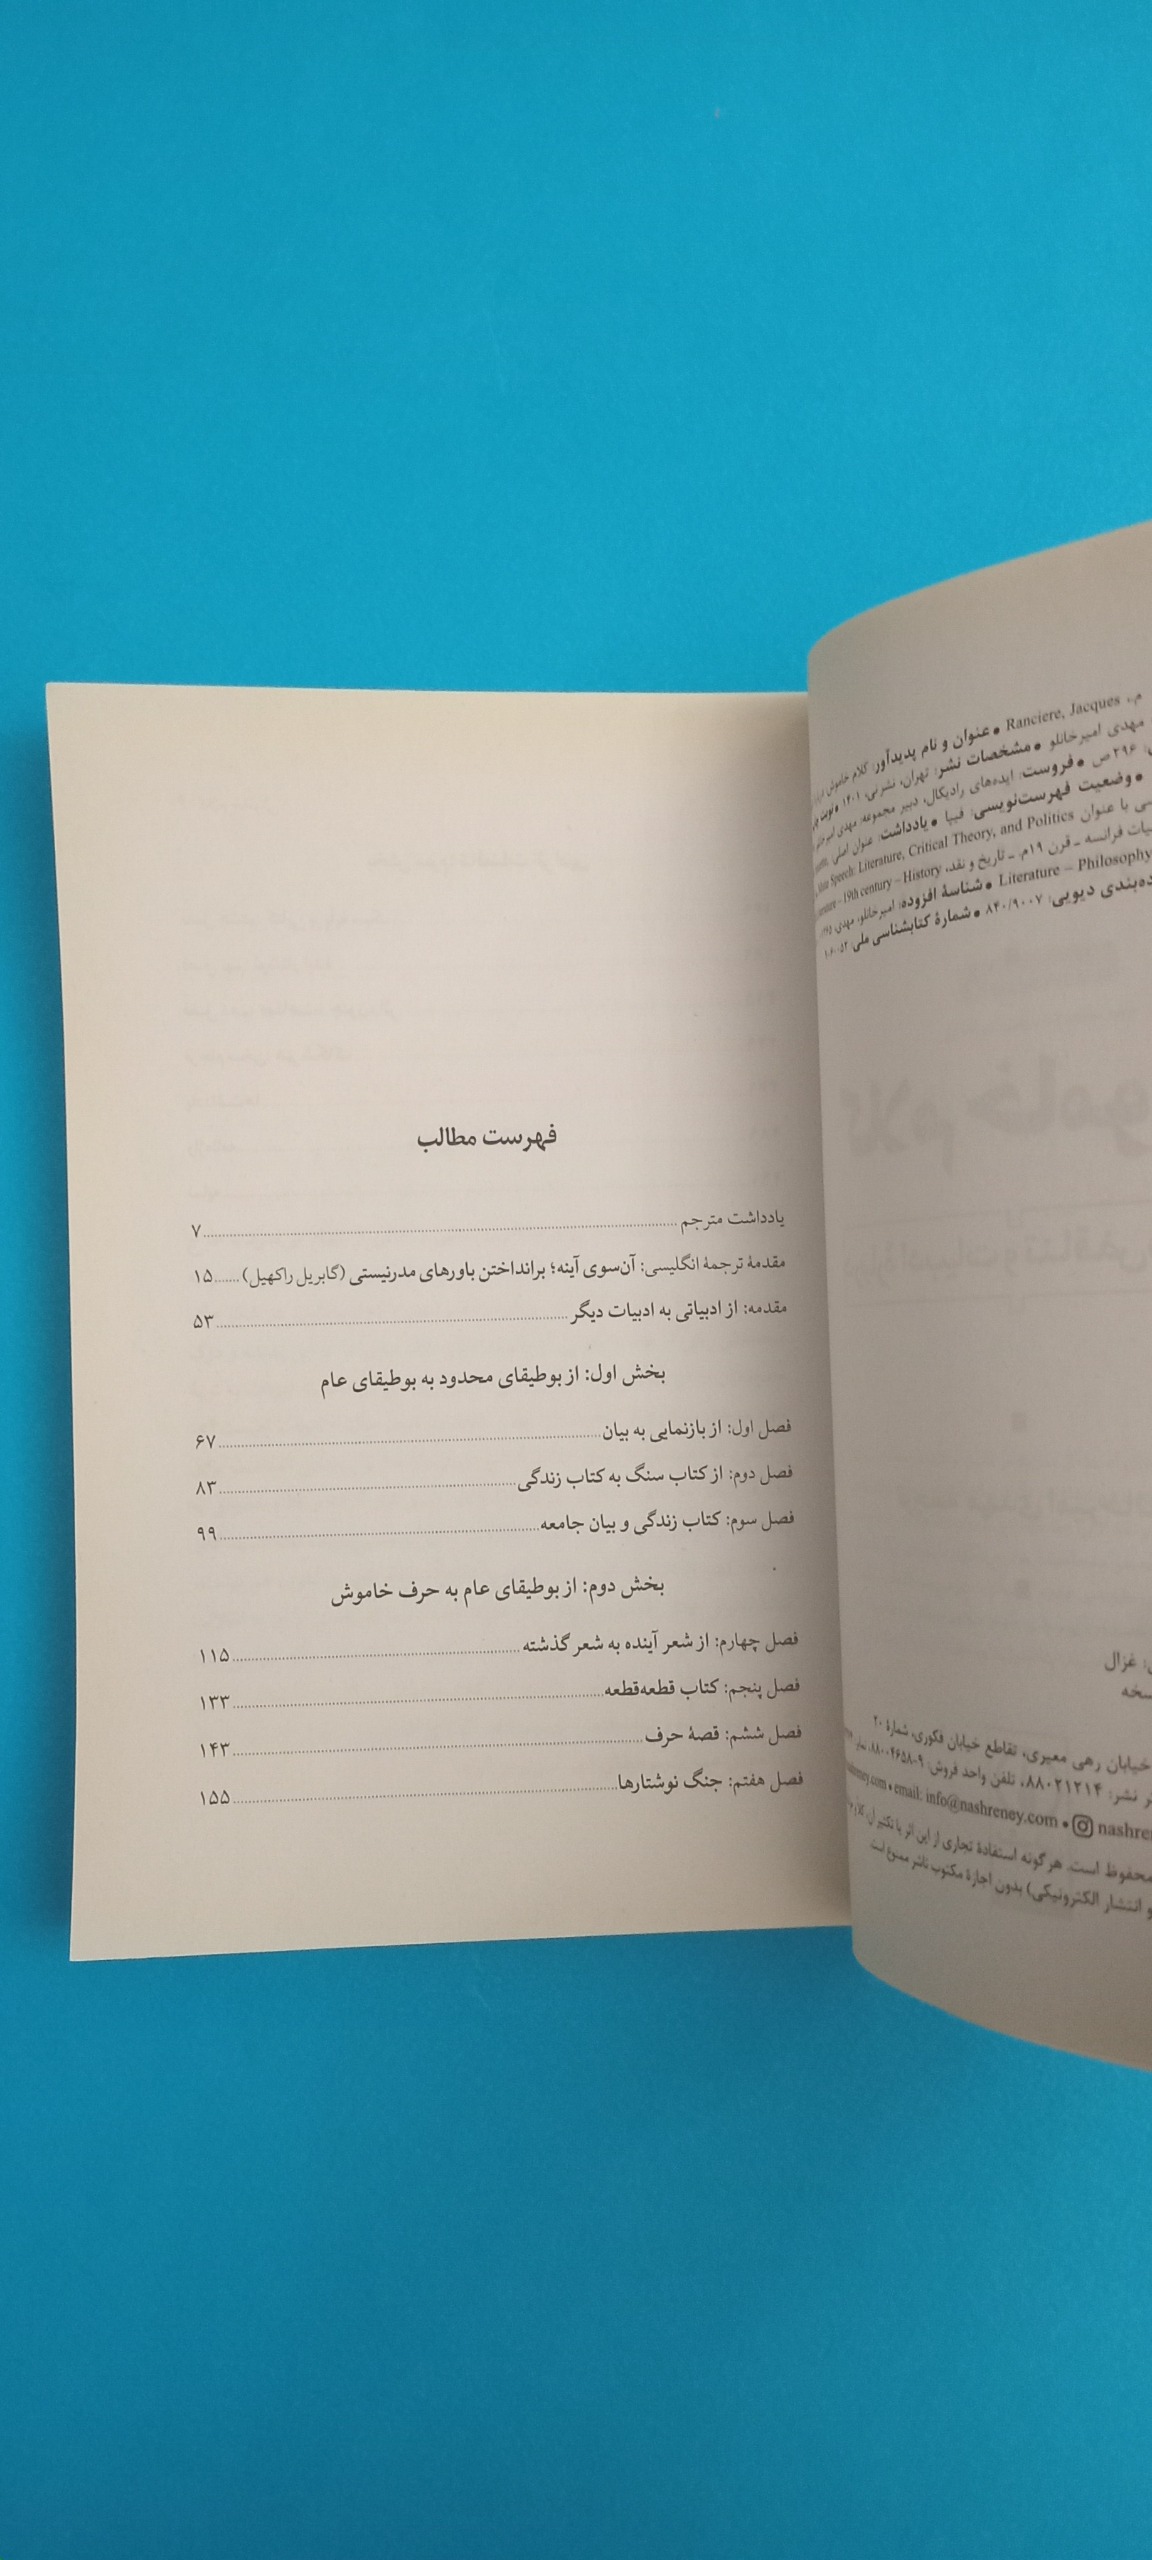 م.، Ranciere, Jacques • عنوان و نام پدیدآور: کلام خاموش
مهدی امیرخانلو • مشخصات نشر: تهران، نشر نی، ۱۴۰۱ • نوبت
۲۹۶ ص • فروست: ایده‌های رادیکال، دبیر مجموعه: مهدی امیرخانلو
• وضعیت فهرست‌نویسی: فیپا • یادداشت: عنوان اصلی
با عنوان Mute Speech: Literature, Critical Theory, and Politics
فرانسه ـ قرن ۱۹م. ـ تاریخ و نقد، 19th century – History
Literature – Philosophy • شناسهٔ افزوده: امیرخانلو، مهدی،
دیویی: ۸۴۰/۹۰۰۷ • شمارهٔ کتابشناسی ملی:
غزال
خیابان رهی معیری، تقاطع خیابان فکوری، شمارهٔ ۲۰
نشر: ۸۸۰۲۱۲۱۴، تلفن واحد فروش: ۹-۸۸۰۰۴۶۵۸
email: info@nashreney.com •
محفوظ است. هرگونه استفادهٔ تجاری از این اثر یا تکثیر آن
و انتشار الکترونیکی) بدون اجازهٔ مکتوب ناشر ممنوع است.
فهرست مطالب
یادداشت مترجم ........ ۷
مقدمهٔ ترجمهٔ انگلیسی: آن‌سوی آینه؛ برانداختن باورهای مدرنیستی (گابریل راکهیل) ........ ۱۵
مقدمه: از ادبیاتی به ادبیات دیگر ........ ۵۳
بخش اول: از بوطیقای محدود به بوطیقای عام
فصل اول: از بازنمایی به بیان ........ ۶۷
فصل دوم: از کتاب سنگ به کتاب زندگی ........ ۸۳
فصل سوم: کتاب زندگی و بیان جامعه ........ ۹۹
بخش دوم: از بوطیقای عام به حرف خاموش
فصل چهارم: از شعر آینده به شعر گذشته ........ ۱۱۵
فصل پنجم: کتاب قطعه‌قطعه ........ ۱۳۳
فصل ششم: قصهٔ حرف ........ ۱۴۳
فصل هفتم: جنگ نوشتارها ........ ۱۵۵